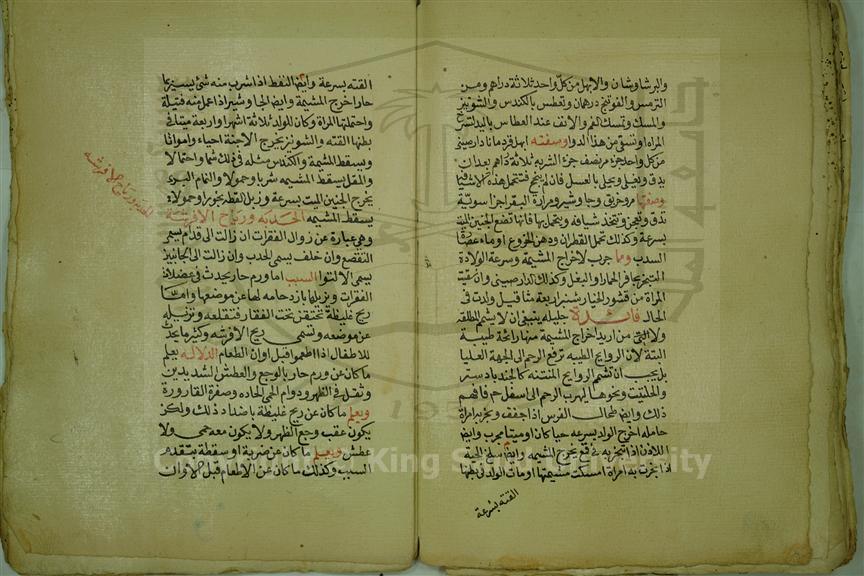 والبرشاوشان والابهل من كل واحد ثلاثة دراهم ومن
الترمس والفوتنج درهمان ويعطس بالكندس والشونيز
والمسك وتمسك الفم والانف عند العطاس باليد لتشنج
المراه وتسقى من هذا الدوا وصفته ابهل قردمانا دارصيني
من كل واحد جزء ونصف جزء الشربه ثلاثة دراهم بعد ان
يدق ويغلى ويحلى بالعسل فان لم ينجح فتتحمل هذه الاشيا
وصفتها مر وخربق وجاوشير ومرارة البقر اجزا سوية
تدق وتعجن وتتخذ شيافه ويتحمل بها فانها تضع الجنين الميت
بسرعة وكذلك تحمل القطران ودهن الخروع او ماء عصارة
السدب ومما جرب لاخراج المشيمة وسرعة الولادة
التبخير بحافر الحمار او البغل وكذلك الدارصيني وان سقيت
المراة من قشور الخيار شنبر اربعة مثاقيل ولدت في
الحال فائدة جليله ينبغي ان لا يشم المطلقه
ولا التي من اريد اخراج المشيمة منها رائحة طيبة
البتة لان الروايح الطيبه ترفع الرحم الى الجهة العليا
بل يجب ان تشم الروايح المنتنه كالجند بادستر
والحلتيت ونحوها ليهرب الرحم الى اسفل حم فافهم
ذلك وايضا طحال الفرس اذا جفف وبخر به امراة
حامله اخرج الولد بسرعه حيا كان او ميتا مجرب وايضا
اللاذن اذا تبخر به في قمع يخرج المشيمه وايضا سلخ الحية
اذا بخرت به امراة امسكت مشيمتها او مات الولد في بطنها
القته بسرعة
القته بسرعة وأيضا النفط اذا شرب منه شئ يسير بما
حار اخرج المشيمة وايضا الجاوشير اذا عمل منه فتيلة
واحتملتها المراة وكان للولد ثلاثة اشهر او اربعة ميتا في
بطنها القته والشونيز يخرج الاجنة احياء وامواتا
ويسقط المشيمة والكندس مثله في ذلك شما واحتمالا
والمقل يسقط المشيمه شربا وحمولا والنمام البري
يخرج الجنين الميت بسرعة وزبل القط بخورا وحمولا
يسقط المشيمه الحدبه ورياح الافرشة
وهي عبارة عن زوال الفقرات ان زالت الى قدام يسمى
التقصع وان خلف يسمى الحدب وان زالت الى الجانبين
يسمى الالتوا السبب اما ورم حار يحدث في عضلات
الفقرات ونزيلها بازدحامه لها عن موضعها واما
ريح غليظة تحتقن تحت الفقار فتقلعه وتزيله
عن موضعه وتسمى ريح الافرشه وكثير ما يحدث
للاطفال اذا اطعموا قبل اوان الطعام الدلاله يعلم
ما كان عن ورم حار بالوجع والعطش الشديدين
وثقل في الظهر ودوام الحمى الحاده وصفرة القارورة
ويعلم ما كان عن ريح غليظة باضداد ذلك ولكن
يكون عقب وجع الظهر ولا يكون معه حمى ولا
عطش ويعلم ما كان عن ضربة او سقطة بتقدم
السبب وكذلك ما كان عن الاطعام قبل الاوان
الحدبه ورياح الافرشه